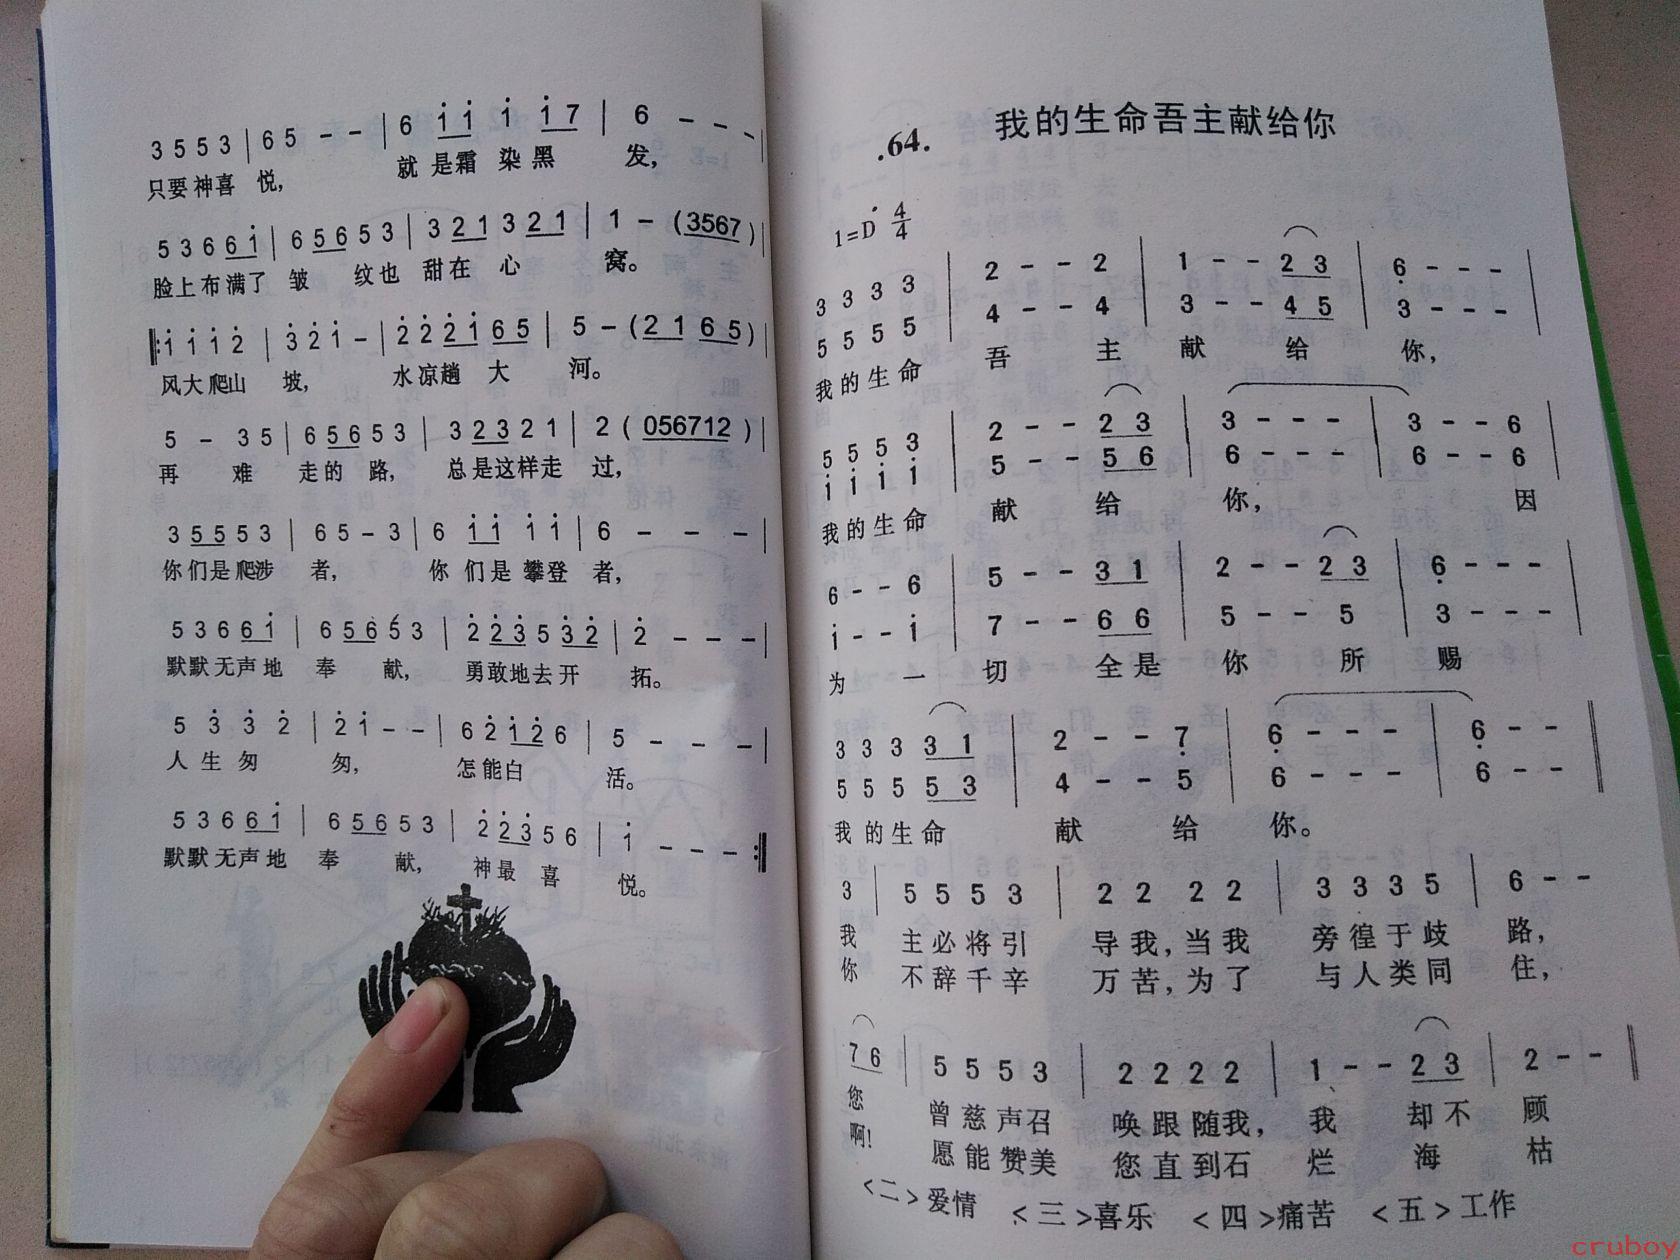 3 5 5 3 | 6 5 - - | 6 i i i i 7 | 6 - - -
只要神喜 悦， 就 是霜 染 黑 发，
5 3 6 6 i | 6 5 6 5 3 | 3 2 1 3 2 1 | 1 - (3567) |
脸上布满了 皱 纹也 甜在 心 窝。
‖: i i i 2̇ | 3̇ 2̇ i - | 2̇ 2̇ 2̇ i 6 5 | 5 - (2 1 6 5) |
风大爬山 坡， 水凉趟 大 河。
5 - 3 5 | 6 5 6 5 3 | 3 2 3 2 1 | 2 ( 056712 ) |
再 难 走的 路， 总是这样走 过，
3 5 5 5 3 | 6 5 - 3 | 6 i i i i | 6 - - - |
你们是爬涉 者， 你 们是 攀登 者，
5 3 6 6 i | 6 5 6 5 3 | 2̇ 2̇ 3̇ 5 3̇ 2̇ | 2̇ - - - |
默默无声地 奉 献， 勇敢地去开 拓。
5 3̇ 3̇ 2̇ | 2̇ i - - | 6 2̇ i 2̇ 6 | 5 - - - |
人生匆 匆， 怎能白 活。
5 3 6 6 i | 6 5 6 5 3 | 2̇ 2̇ 3̇ 5 6 | i - - - :‖
默默无声地 奉 献， 神最 喜 悦。
.64. 我的生命吾主献给你
1=D 4/4
3 3 3 3 | 2 - - 2 | 1 - - 2 3 | 6̣ - - - |
5 5 5 5 | 4 - - 4 | 3 - - 4 5 | 3 - - - |
我的生命 吾 主 献 给 你，
5 5 5 3 | 2 - - 2 3 | 3 - - - | 3 - - 6 |
i i i i | 5 - - 5 6 | 6 - - - | 6 - - 6 |
我的生命 献 给 你， 因
6 - - 6 | 5 - - 3 1 | 2 - - 2 3 | 6̣ - - - |
i - - i | 7 - - 6 6 | 5 - - 5 | 3 - - - |
为 一 切 全是 你 所 赐
3 3 3 3 1 | 2 - - 7̣ | 6̣ - - - | 6̣ - - - ‖
5 5 5 5 3 | 4 - - 5 | 6 - - - | 6 - - - ‖
我的生命 献 给 你。
3 | 5 5 5 3 | 2 2 2 2 | 3 3 3 5 | 6 - -
我 主必将引 导我，当我 旁徨于歧 路，
你 不辞千辛 万苦，为了 与人类同 住，
7 6 | 5 5 5 3 | 2 2 2 2 | 1 - - 2 3 | 2 - - ‖
您 曾慈声召 唤跟随我， 我 却不 顾
啊！ 愿能赞美 您直到石 烂 海 枯
<二>爱情 <三>喜乐 <四>痛苦 <五>工作
cruboy